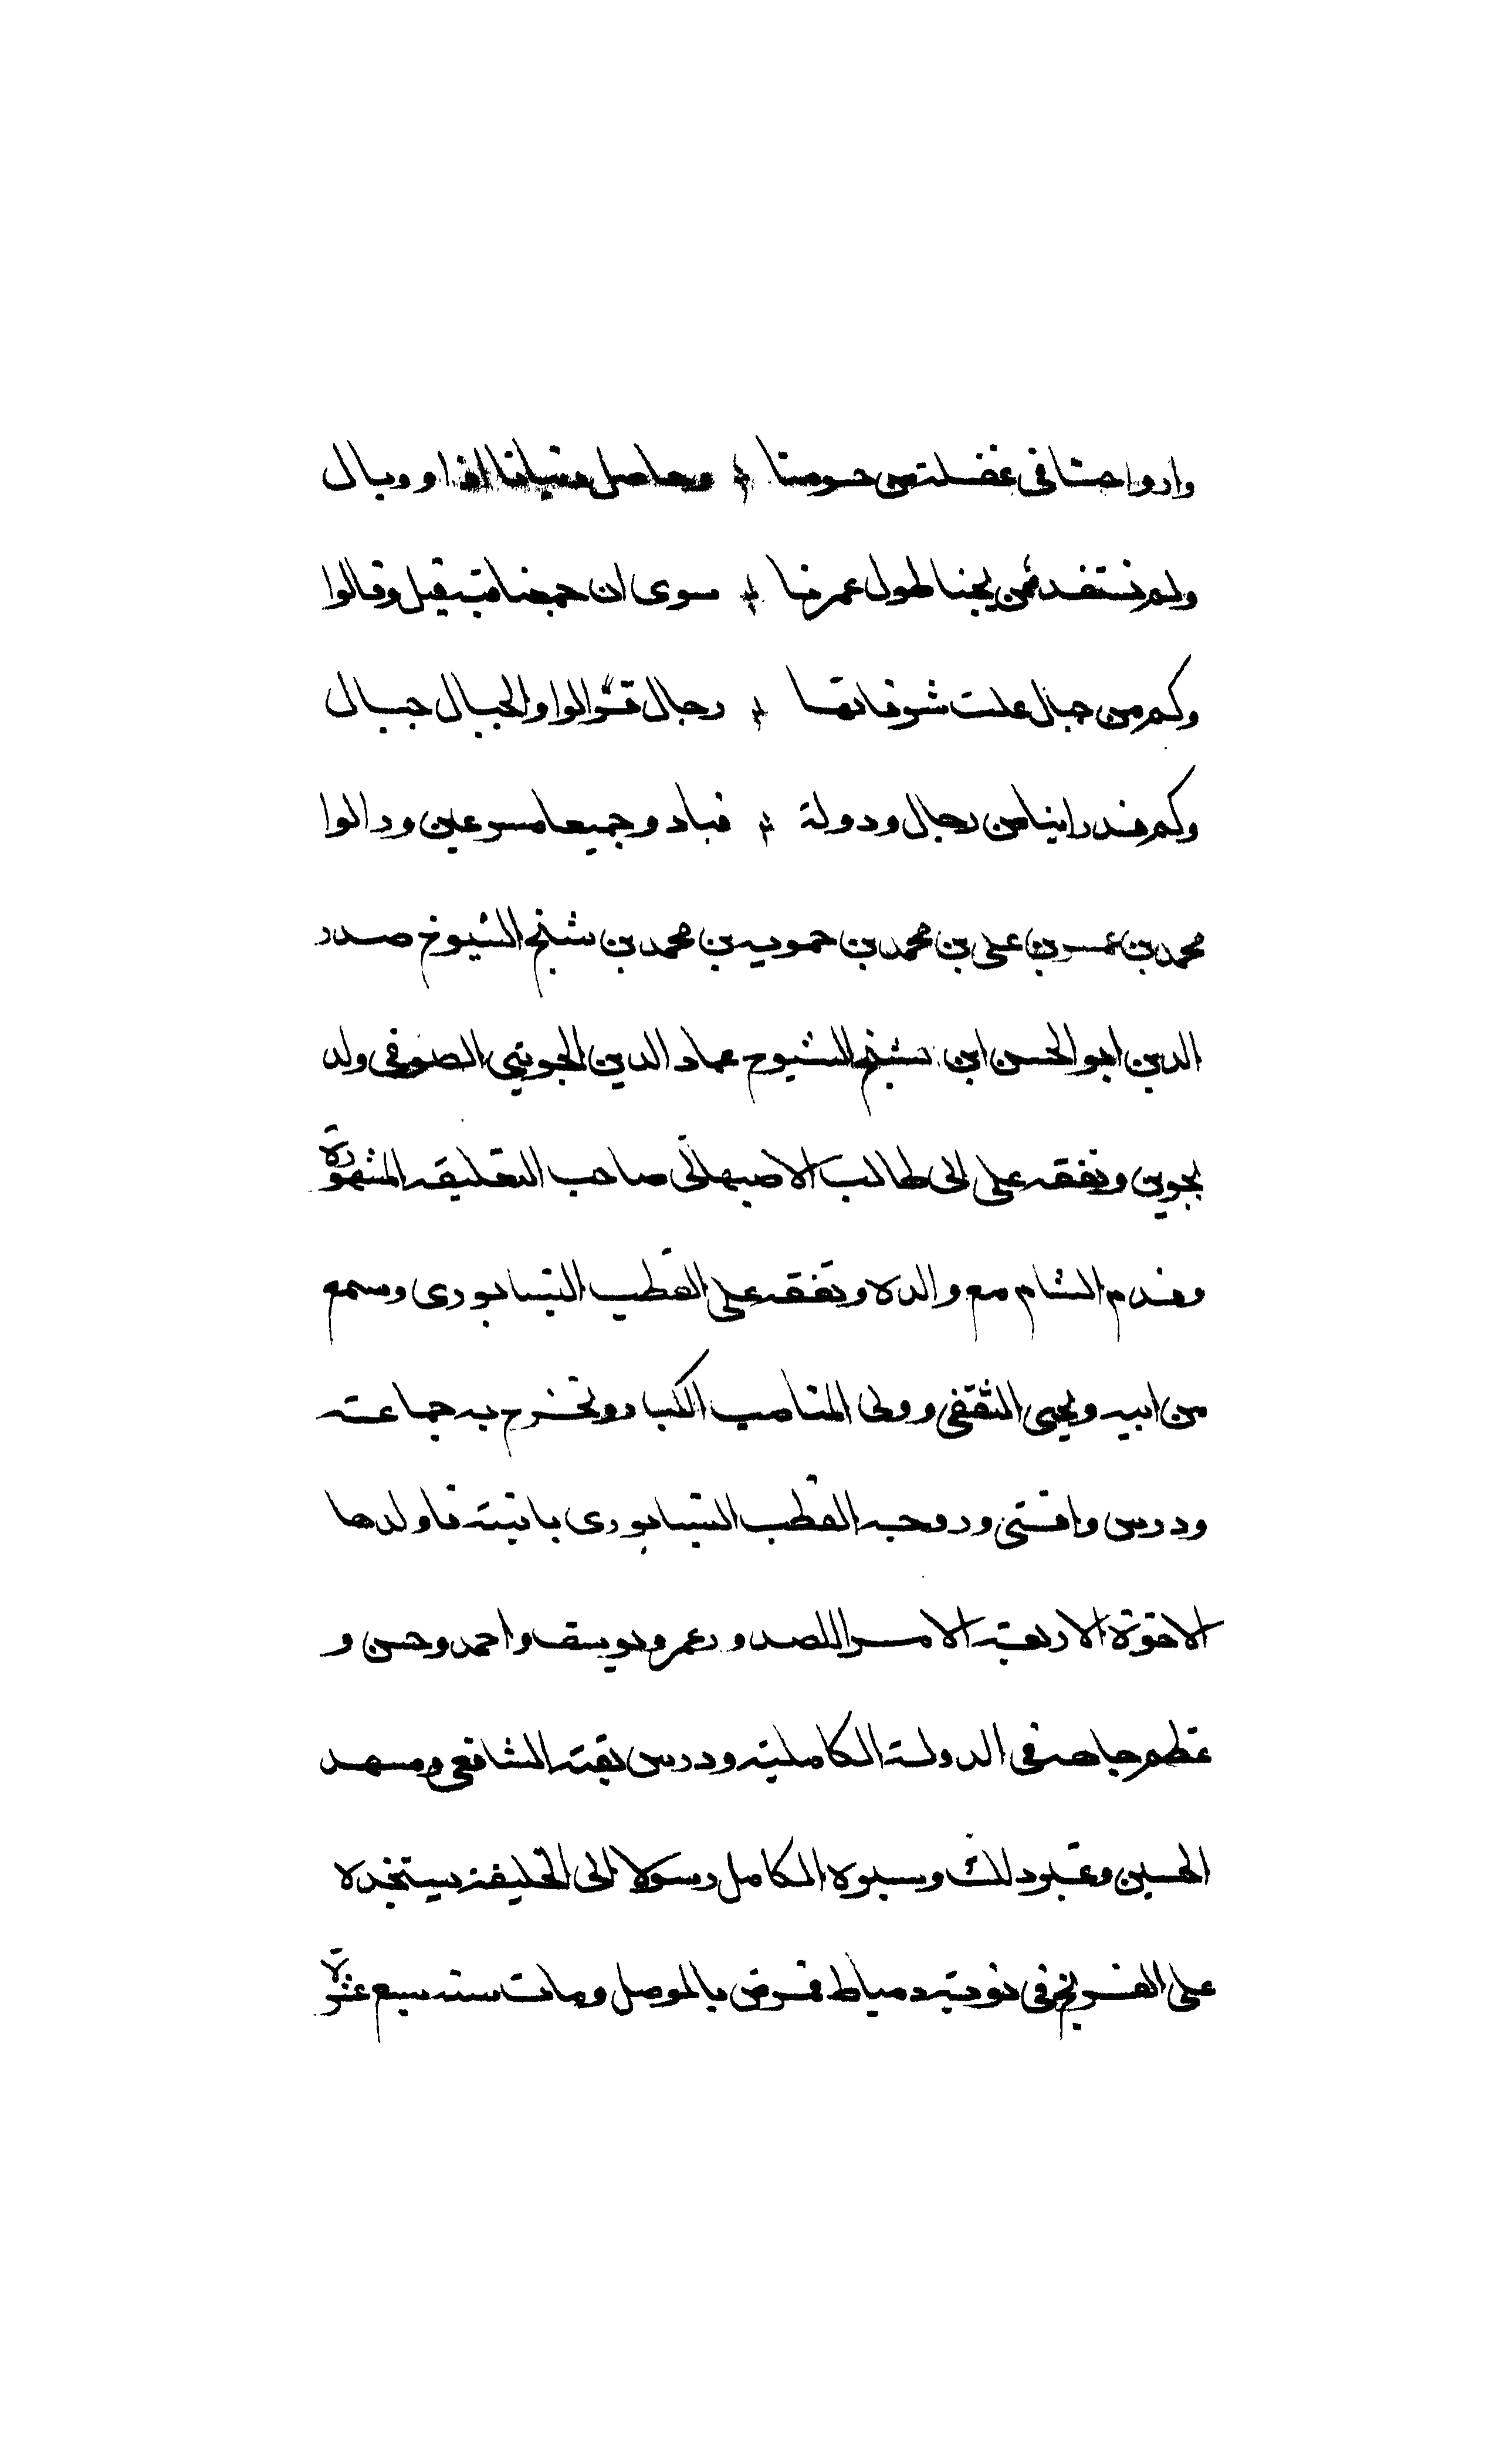 وارواحنا فى غفلة من جسومنا ❊ وحاصل دنيانا اذا ووبال
ولم نستفد من بحثنا طول عمرنا ❊ سوى ان جمعنا فيه قيل وقالوا
وكم من جبال علت شرفاتها ❊ رجال فزالوا والجبال جبال
وكم قد راينا من رجال ودولة ❊ فبادوا جميعا مسرعين وزالوا
محمد بن عمر بن على بن محمد بن حمويه بن محمد بن شيخ الشيوخ صدر
الدين ابو الحسن ابن شيخ الشيوخ عماد الدين الجوينى الصوفى ولد
بجوين وتفقه على ابى طالب الاصبهانى صاحب التعليقه المشهورة
وقدم الشام مع والده وتفقه على القطب النيسابورى وسمع
من ابيه ويحيى الثقفى وولى المناصب الكبار وتخرج به جماعة
ودرس وافتى وزوجه القطب النيسابورى بابنته فاولدها
الاخوة الاربعة الامرا الصدور عمر ويوسف واحمد وحسن و
عظم جاهه فى الدولة الكاملية ودرس بقبة الشافعى ومشهد
الحسين وغير ذلك وسيره الكامل رسولا الى الخليفة يستنجده
على الفرنج فى نوبة دمياط فمرض بالموصل ومات سنة سبع عشرة